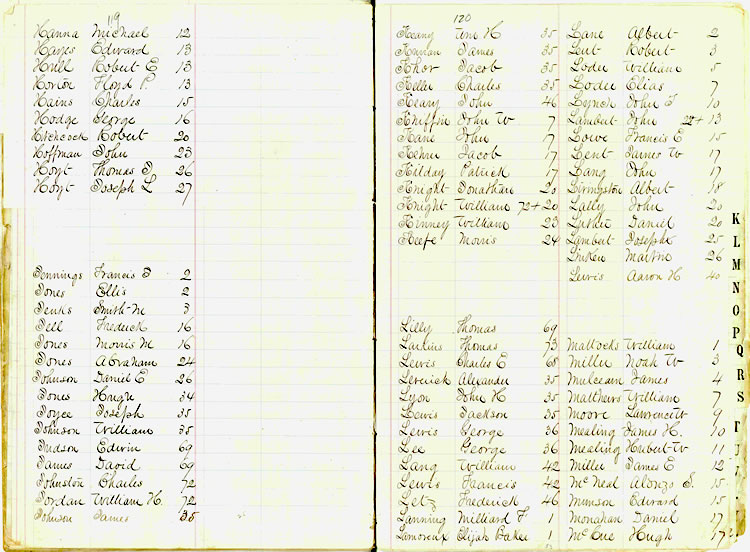 119
Hanna Michael 12
Hayes Edward 13
Hull Robert E 13
Horton Floyd P. 13
Hains Charles 15
Hodge George 16
Hitchcock Robert 20
Hoffman John 23
Hoyt Thomas S. 26
Hoyt Joseph L 27
Jennings Francis 2
Jones Ellis 2
Jenks Smith M 3
Jell Fredrick 16
Jones Morris M 16
Jones Abraham 24
Johnson Daniel E 26
Jones Hugh 34
Joyce Joseph 35
Johnson William 35
Judson Edwin 69
James David 69
Johnston Charles 72
Jordan William H. 72
Johnson James 35
120
Keany Wm H 35
James 35
Khor Jacob 35
Keller Charles 35
Keary John 46
Kniffin John W 7
Kane John 17
Kehru Jacob 17
Kilday Patrick 17
Knight Jonathan 20
Knight William 72+20
Kinney William 23
Keefe Morris 24
Lilly Thomas 69
Larkins Thomas 73
Lewis Charles E 68
Alexander 35
Lyon John H 35
Lewis Jackson 35
Lewis George 36
Lee George 36
Lang William 42
Lewis Francis 42
Letz Frederick 46
Lanning Milliard F 1
Lamoreux Elijah Baker 1
Lane Albert 2
Lent Robert 3
Loder William 5
Loder Elias 7
Lynch John T 10
Lambert John 22+13
Lowe Francis E 15
Lent James W 17
Lang John 17
Livingston Albert 18
Lally John 20
Daniel 20
Lambert Joseph 25
Martin 26
Lewis Aaron H 40
Mattocks William 1
Miller Noah W 3
James 4
Matthews William 7
Moore Lawrence W 9
Mealing James H. 10
Mealing Hubert W 11
Miller James E 12
McNeal Alonzo S. 15
Munson Edward 15
Monahan Daniel 17
McCue Hugh 17
K
L
M
N
O
P
Q
R
S
T